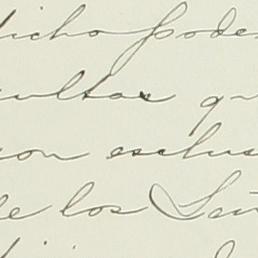 dicho poder
cultar qu
con esclus
de los Señ